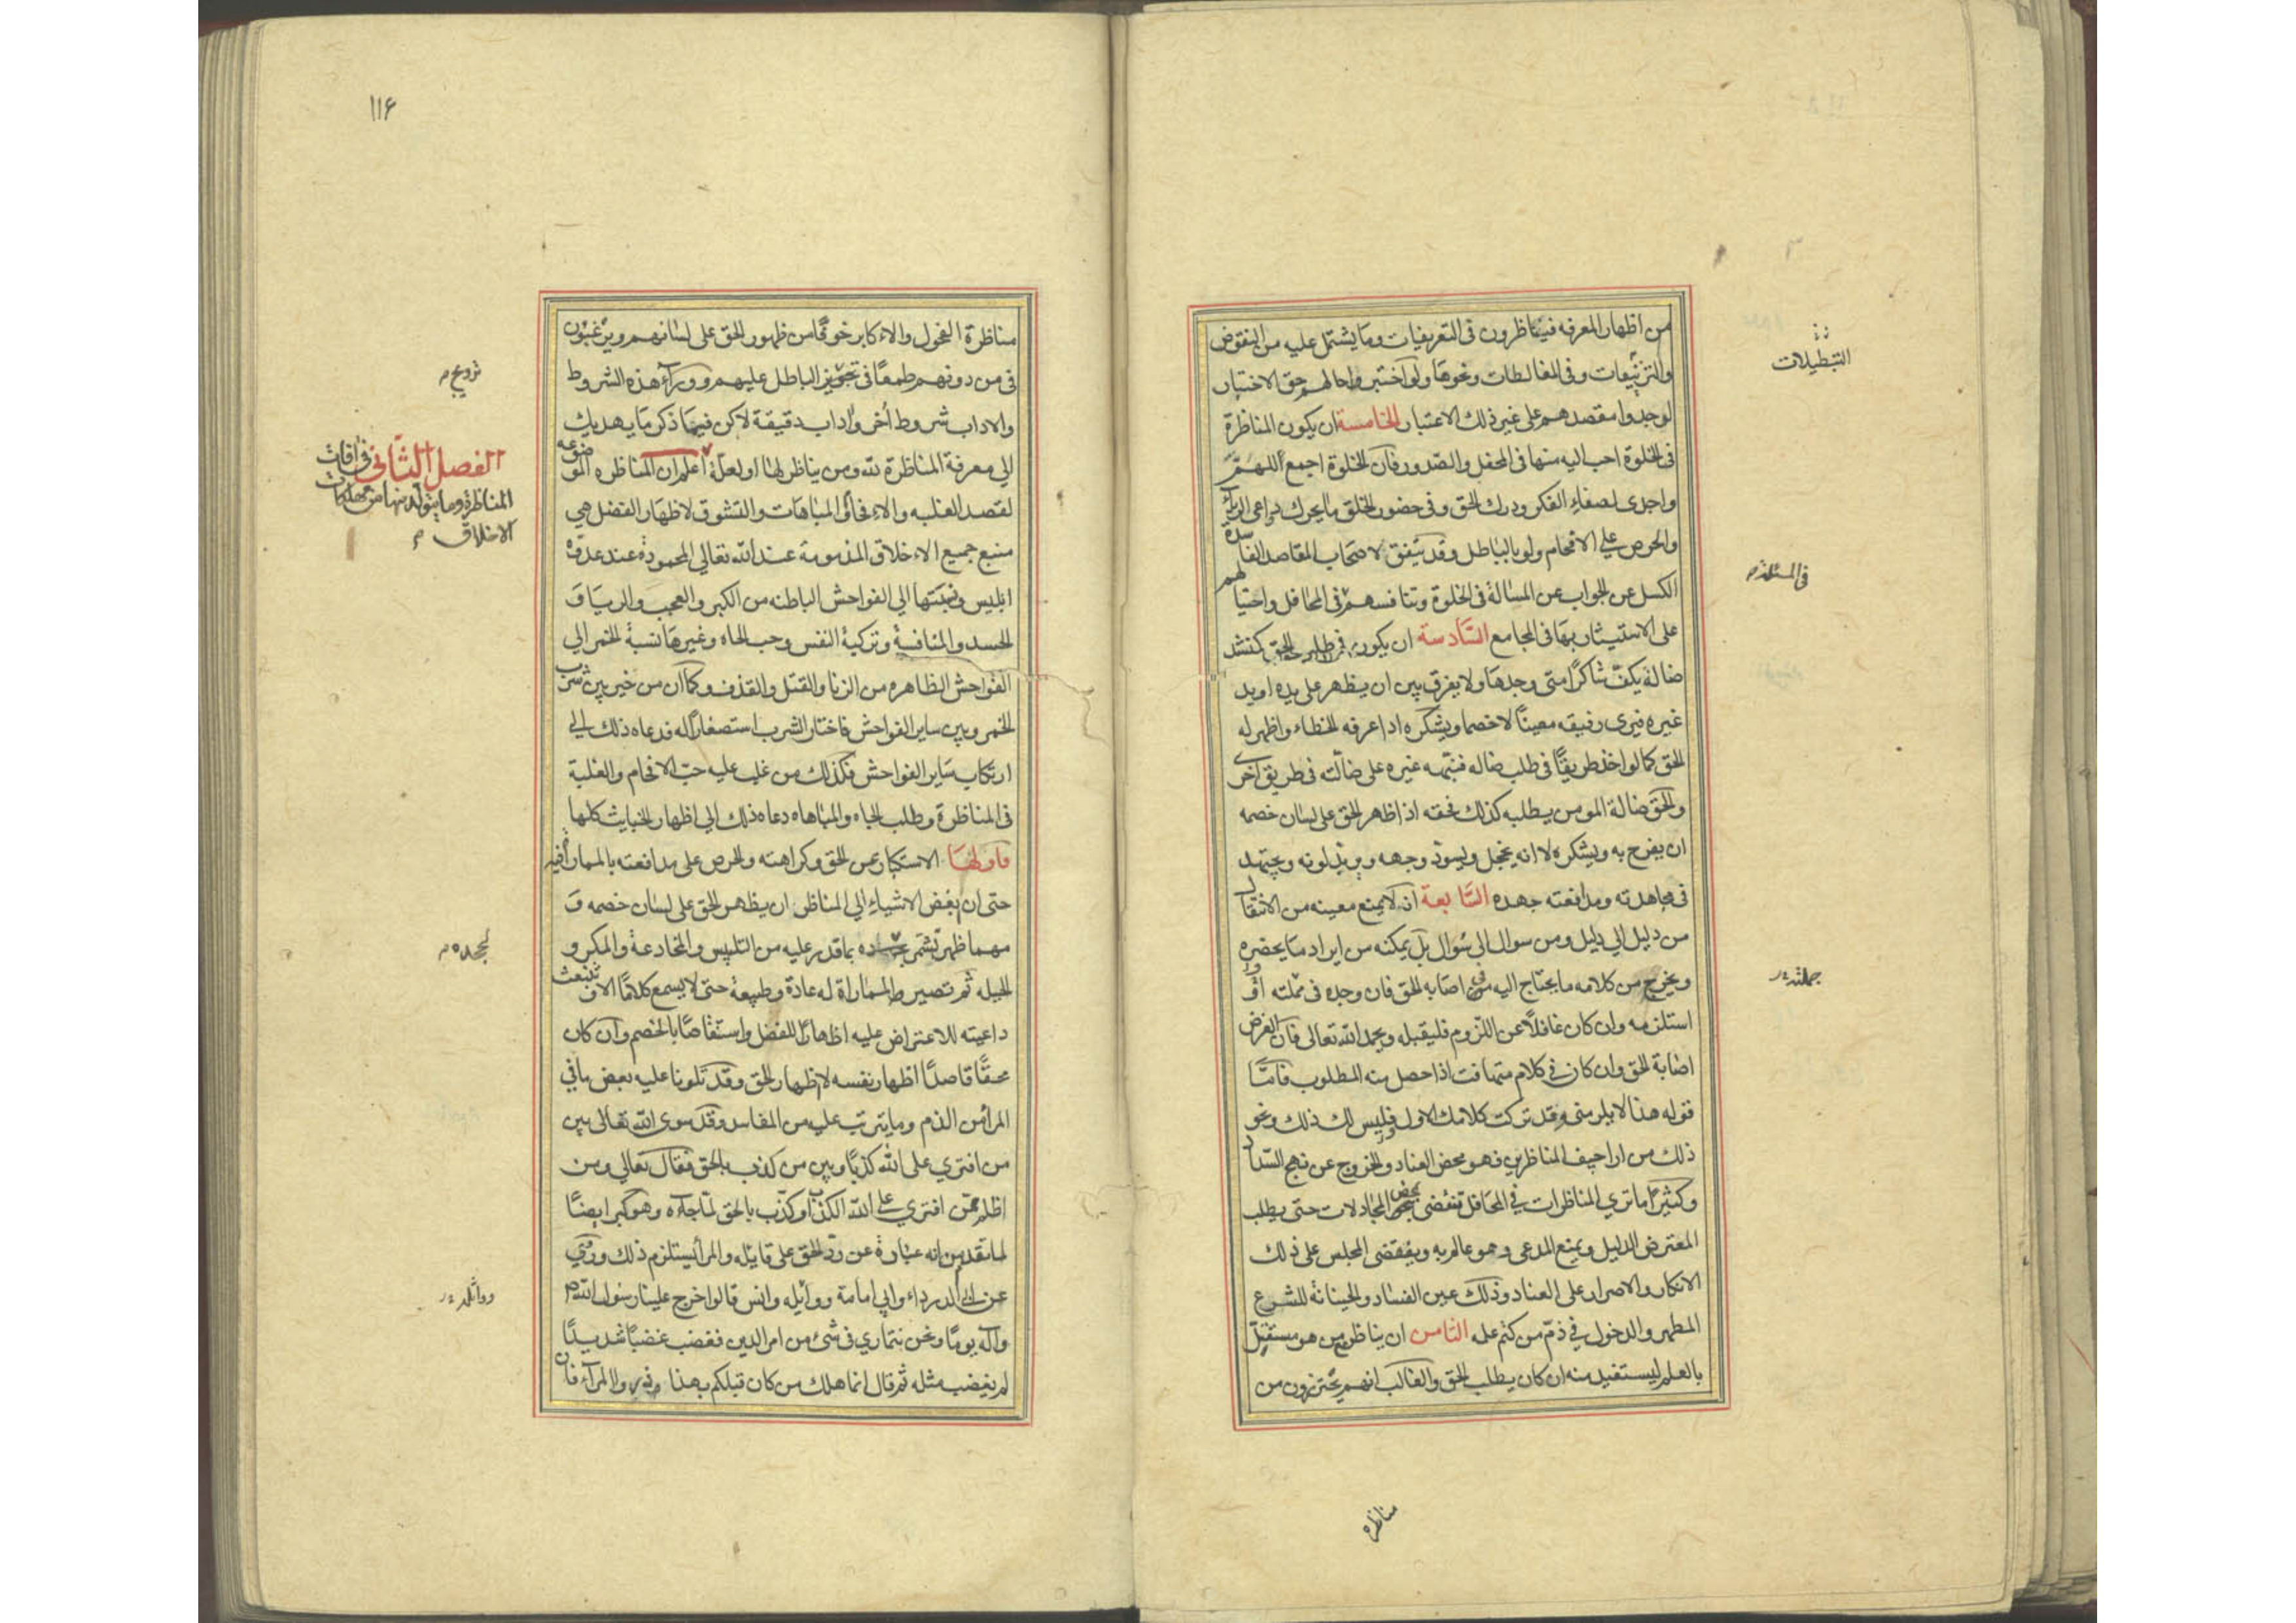 من اظهار المعرفه فيتناظرون فى التعريفيات وما يشتمل عليه من النقوض
والتزئيعات وفى المغالطات ونحوها ولو اختبر احوالهم حق الاختبار
لوجدوا مقصدهم على غير ذلك الاعتبار الخامسة ان يكون المناظرة
فى الخلوة احب اليه منها فى المحفل والصدور فان الخلوة اجمع للهم
واجدى لصفاء الفكر ودرك الحق وفى حضور الخلق ما يحرك دواعى الرياء
والحرص على الافحام ولو بالباطل وقد يتفق لاصحاب المقاصد الفاسدة
الكسل عن الجواب عن المسالة فى الخلوة وتنافسهم فى المحافل واحتيالهم
على الاستيثار بها فى المجامع السادسة ان يكون فى طلب الحق كمنشد
ضالة يكون شاكرا متى وجدها ولا يفرق بين ان يظهر على يده او يد
غيره فيرى رفيقه معينا لا خصما ويشكره اذا عرفه الخطاء واظهر له
الحق كما لو اخذ طريقا فى طلب ضاله فنبهه غيره على ضالته فى طريق آخر
والحق ضالة المومن يطلبه كذلك فحقه اذا ظهر الحق على لسان خصمه
ان يفرح به ويشكره لا انه يخجل ويسود وجهه ويزيل لونه ويجتهد
فى مجاهدته ومدافعته جهده السابعة ان لا يمنع معينه من الانتقال
من دليل الى دليل ومن سوال الى سوال بل يمكنه من ايراد ما يحضره
ويخرج من كلامه ما يحتاج اليه فى اصابه الحق فان وجده فى جملته او
استلزمه وان كان غافلا عن اللزوم فليقبله ويحمد الله تعالى فان الغرض
اصابة الحق وان كان فى كلام متهافت اذا حصل منه المطلوب فاما
قوله هذا لا يلزمنى وقد تركت كلامك الاول وليس لك ذلك ونحو
ذلك من اراجيف المناظرين فهو محض العناد والخروج عن نهج السداد
وكثيرا ما ترى المناظرات فى المحافل تنقضى بمحض المجادلات حتى يطلب
المعترض الدليل ويمنع المدعى وهو عالم به وينقضى المجلس على ذلك
الانكار والاصرار على العناد وذلك عين الفساد والخيانة للشرع
المطهر والدخول فى ذم من كتم علمه الثامن ان يناظر مع من هو مستقل
بالعلم ليستفيد منه ان كان يطلب الحق والغالب انهم يحترزون من
التبطيلات
فى المسئلة
جملته
مناظره
۱۱۶
مناظرة الفحول والاكابر خوفا من ظهور الحق على لسانهم ويرغبون
فى من دونهم طمعا فى تجويز الباطل عليهم ووراء هذه الشروط
والاداب شروط أخر واداب دقيقة لاكن فيما ذكر ما يهديك
الى معرفة المناظرة لله ومن يناظر لها او لعلة اعلم ان المناظره الموضوعه
لقصد الغلبه والافحام والمباهات والتشوق لاظهار الفضل هى
منبع جميع الاخلاق المذمومة عند الله تعالى المحمودة عند عدوه
ابليس ونسبتها الى الفواحش الباطنه من الكبر والعجب والريا و
الحسد والمنافسة وتزكية النفس وحب الجاه وغيرها نسبة الخمر الى
الفواحش الظاهره من الزنا والقتل والقذف وكما ان من خير بين شرب
الخمر وبين ساير الفواحش فاختار الشرب استصغارا له فدعاه ذلك الى
ارتكاب ساير الفواحش فكذلك من غلب عليه حب الافحام والغلبة
فى المناظرة وطلب الجاه والمباهاه دعاه ذلك الى اظهار الخبايث كلها
فاولها الاستكبار عن الحق وكراهته والحرص على مدافعته بالمماراة فيه
حتى ان ابغض الاشياء الى المناظر ان يظهر الحق على لسان خصمه و
مهما ظهر تشمر بما قدر عليه من التلبيس والمخادعة والمكر و
الحيله ثم تصير المماراة له عادة وطبيعة حتى لا يسمع كلاما الا وتنبعث
داعيته للاعتراض عليه اظهارا للفضل واستنقاصا بالخصم وان كان
محقا قاصدا اظهار نفسه لا ظهار الحق وقد تلونا عليه بعض ما فى
المرا من الذم وما يترتب عليه من المفاسد وقد سوى الله تعالى بين
من افترى على الله كذبا وبين من كذب بالحق فقال تعالى ومن
اظلم ممن افترى على الله الكذب او كذب بالحق لما جاءه وهو كبر ايضا
لما تقدم من انه عبارة عن رد الحق على قايله والمرا يستلزم ذلك وروى
عن ابى الدرداء وابى امامة ووايله وانس قالوا خرج علينا رسول الله ص
وآله يوما ونحن نتمارى فى شئ من امر الدين فغضب غضبا شديدا
لم يغضب مثله ثم قال انما هلك من كان قبلكم بهذا وذروا المرآء فان
ترويج
الفصل الثانى فى افات
المناظرة وما يتولد منها من مهلكات
الاخلاق
لجحده
وواثلة